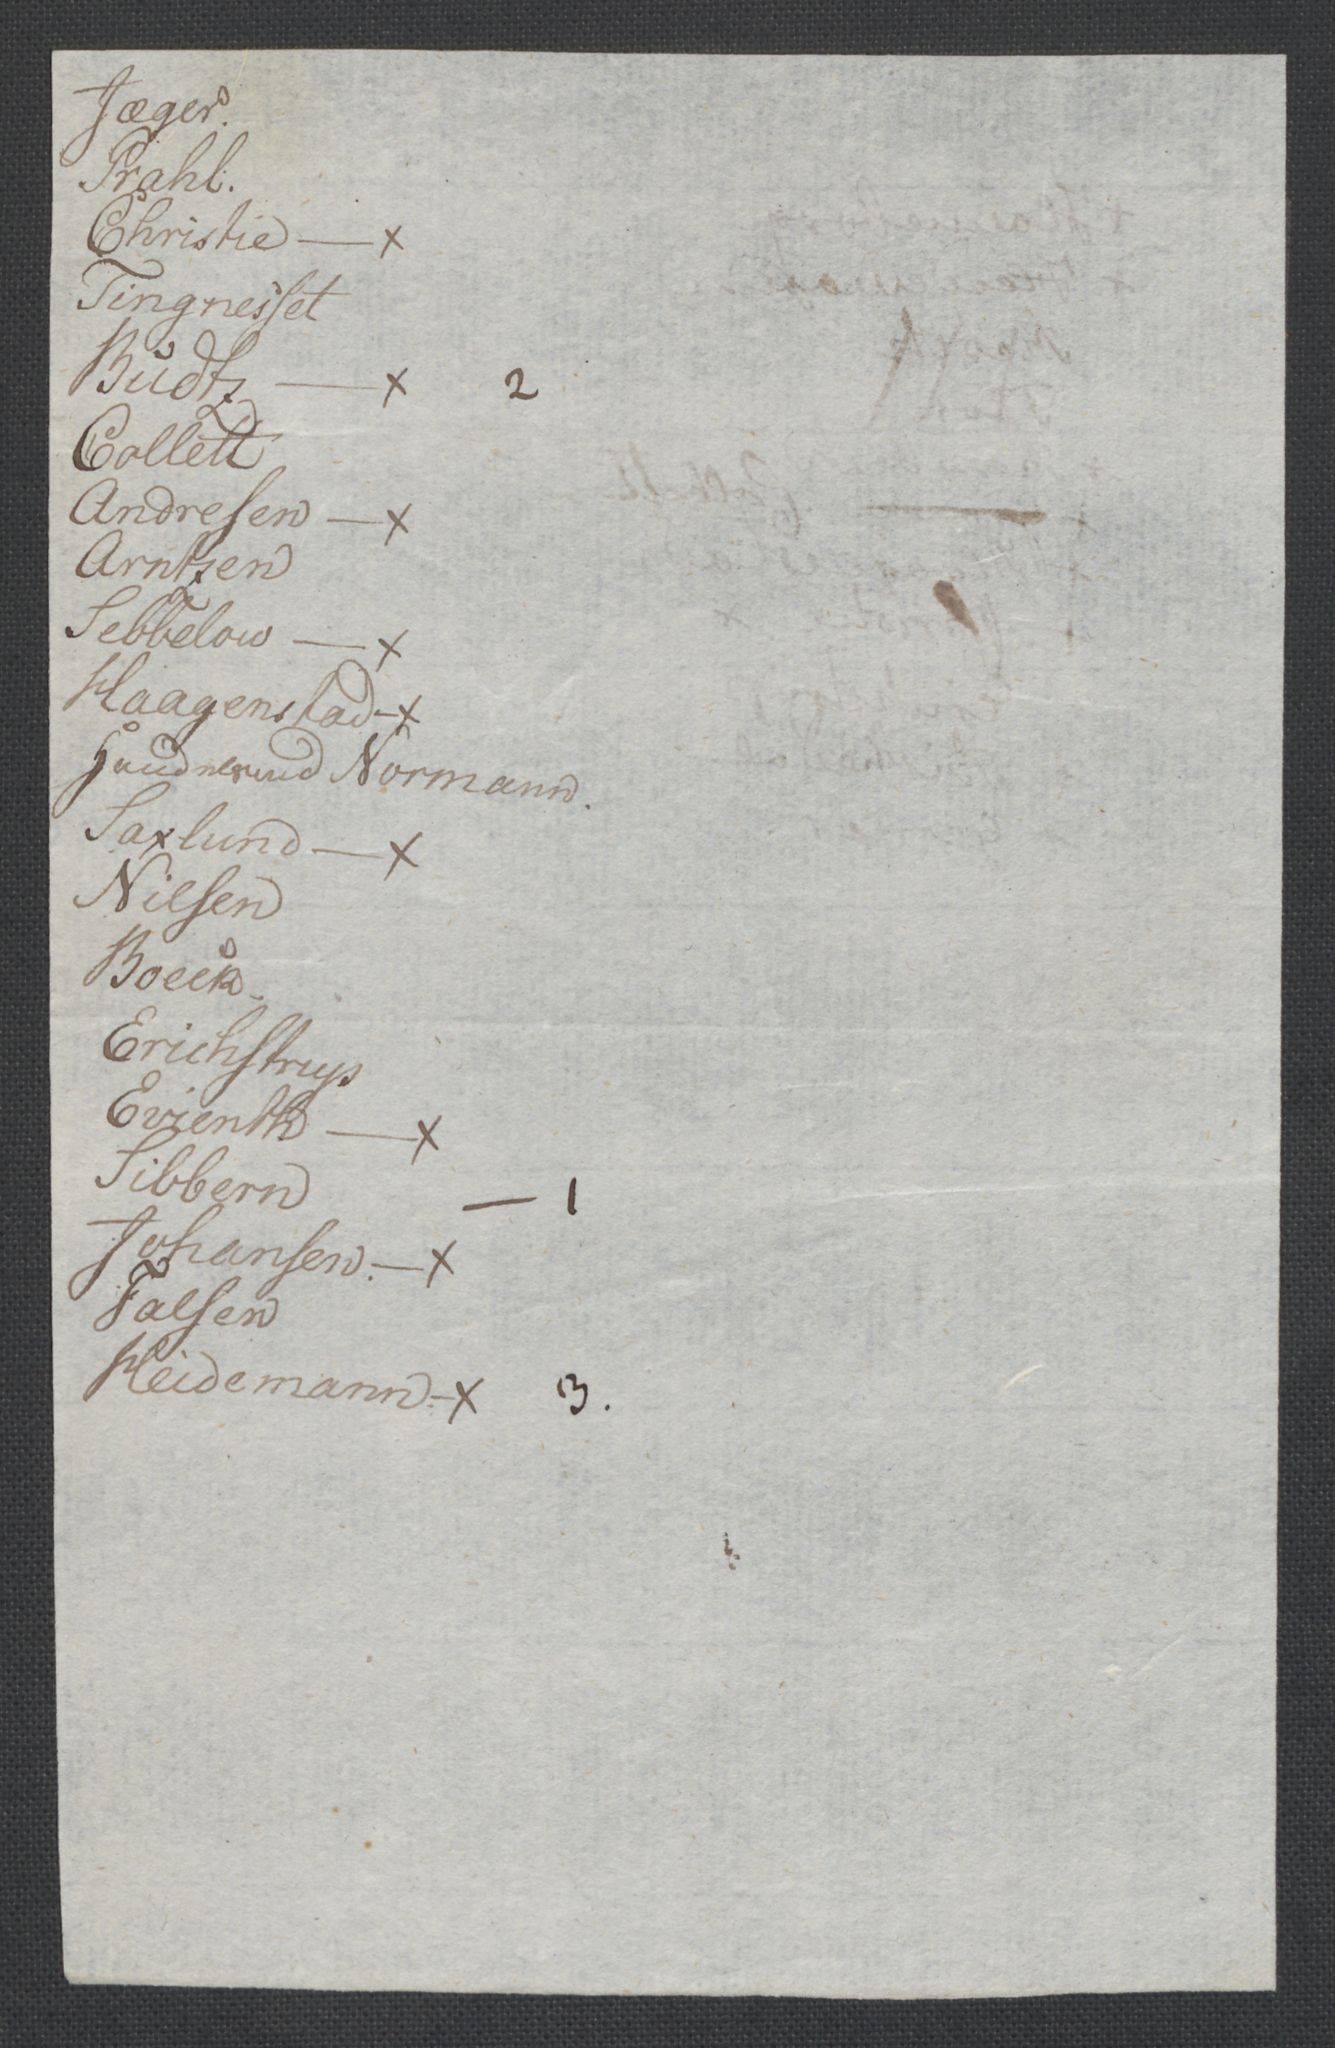 Jæger.
Prahl.
Christie — x
Tingnesset
Budtz — x 2
Collett
Andresen — x
Arntzen
Sebbelow — x
Haagenstad - x
Normann.
Saxlund — x
Nilsen
Boeck.
Erichstrup
Evienth — x
Sibbern — 1
Johansen. — x
Falsen
Heidemann - x 3.